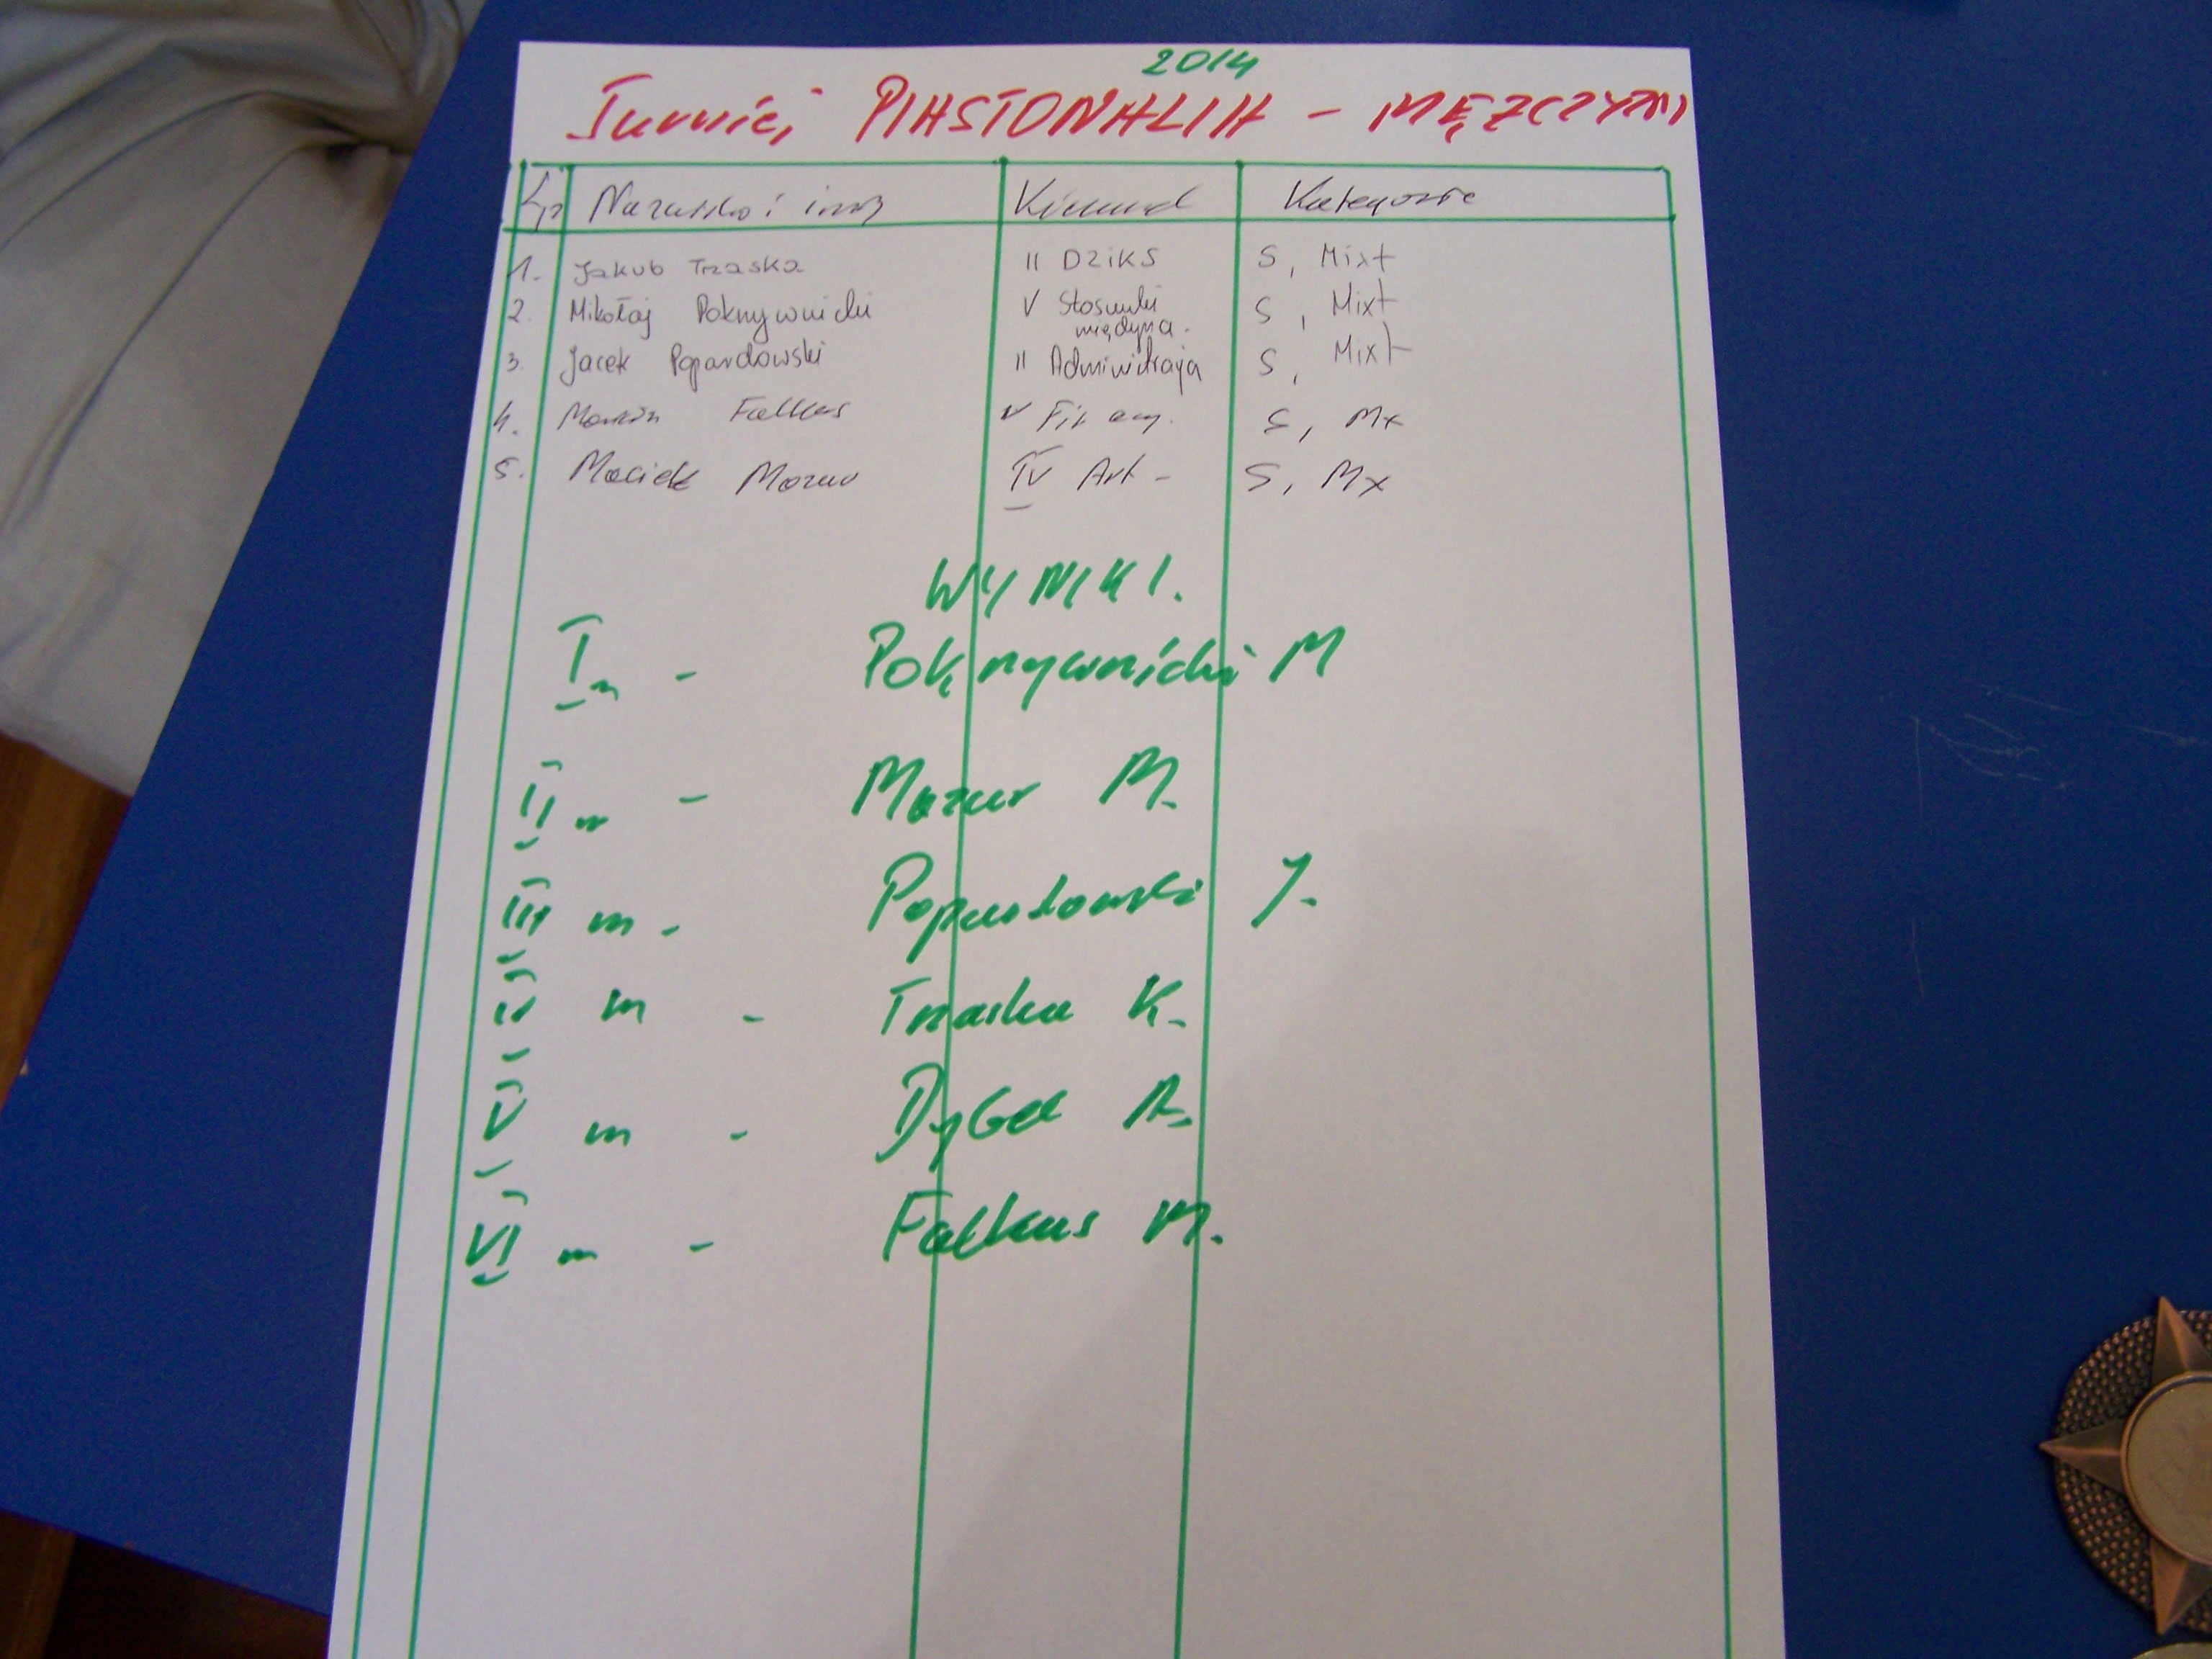 2014
Turniej PIASTONALIA - MĘŻCZYŹNI
Lp Nazwisko i imię Kierunek Kategorie
1. Jakub Trzaska II DZIKS S, Mixt
2. Mikołaj Pokrywnicki V Stosunki S, Mixt
międzyna.
3. Jacek Popardowski II Administracja S, Mixt
4. Marcin Falkus V Fil ang. S, Mx
5. Maciek Mazur IV Art - S, Mx
WYNIKI.
I m - Pokrywnicki M
II m - Mazur M.
III m - Popardowski J.
IV m - Trzaska K.
V m - Dybek A.
VI m - Falkus M.